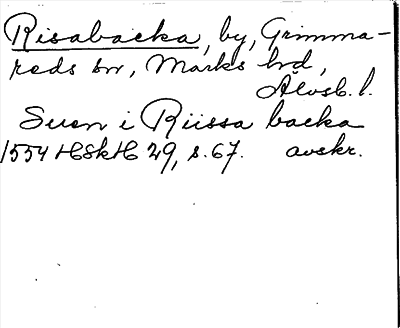 Risabacka, by, Grimma-
reds sn, Marks hd,
Älvsb. l.
Suen i Riissa backa
1554 HSkH 29, s. 67. avskr.